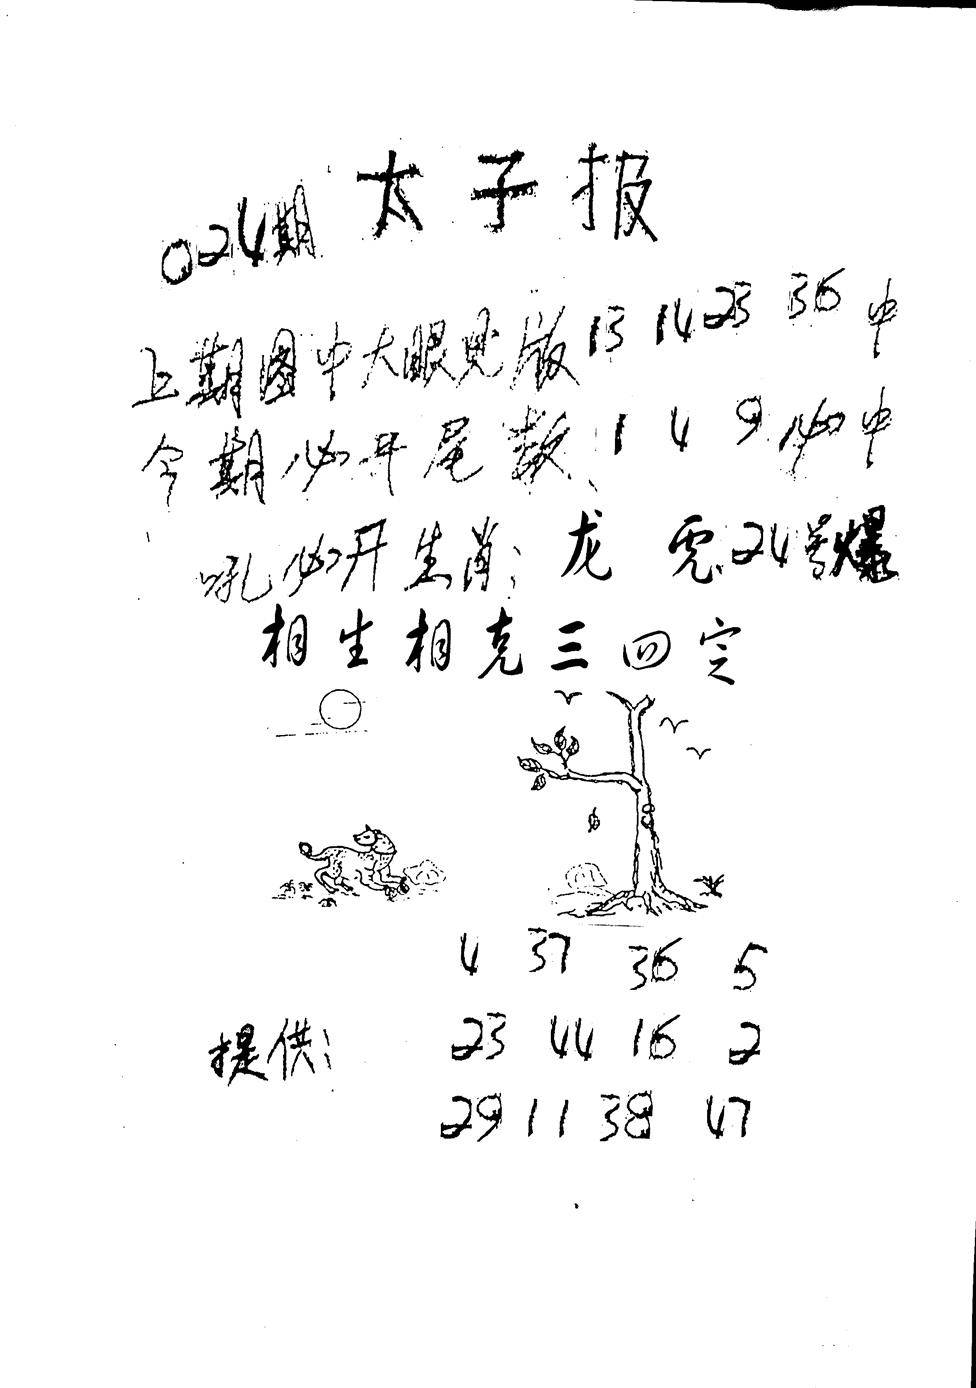 太子报
024期
上期图中大眼见版 13 14 23 36 中
今期必开尾数 1 4 9 必中
吼必开生肖: 龙 虎 24号爆
相生相克三四定
4 37 36 5
提供: 23 44 16 2
29 11 38 47